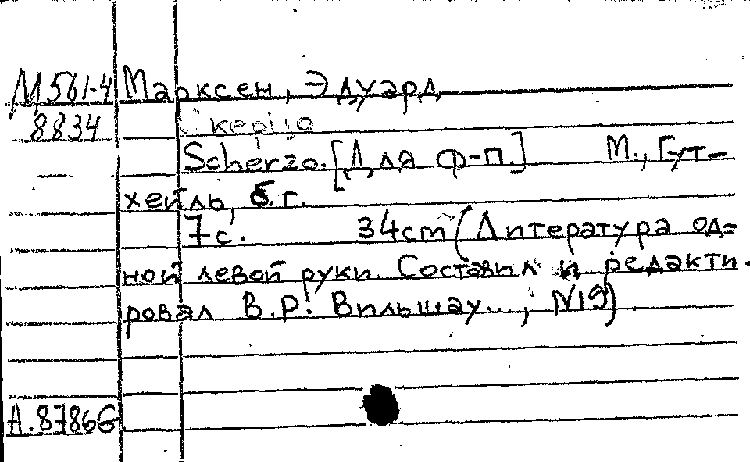 М 561-4 Марксен, Эдуард
8834 Скерцо
Scherzo. [Для ф-п.] М., Гут-
хейль, б. г.
7 с. 34 cm (Литература од-
ной левой руки. Составил и редакти-
ровал В.Р. Вильшау..., №19).
А.87866